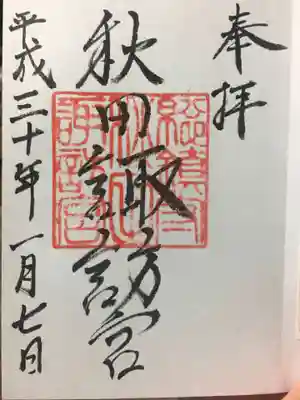 奉拝
秋田諏訪宮
平成三十年一月七日